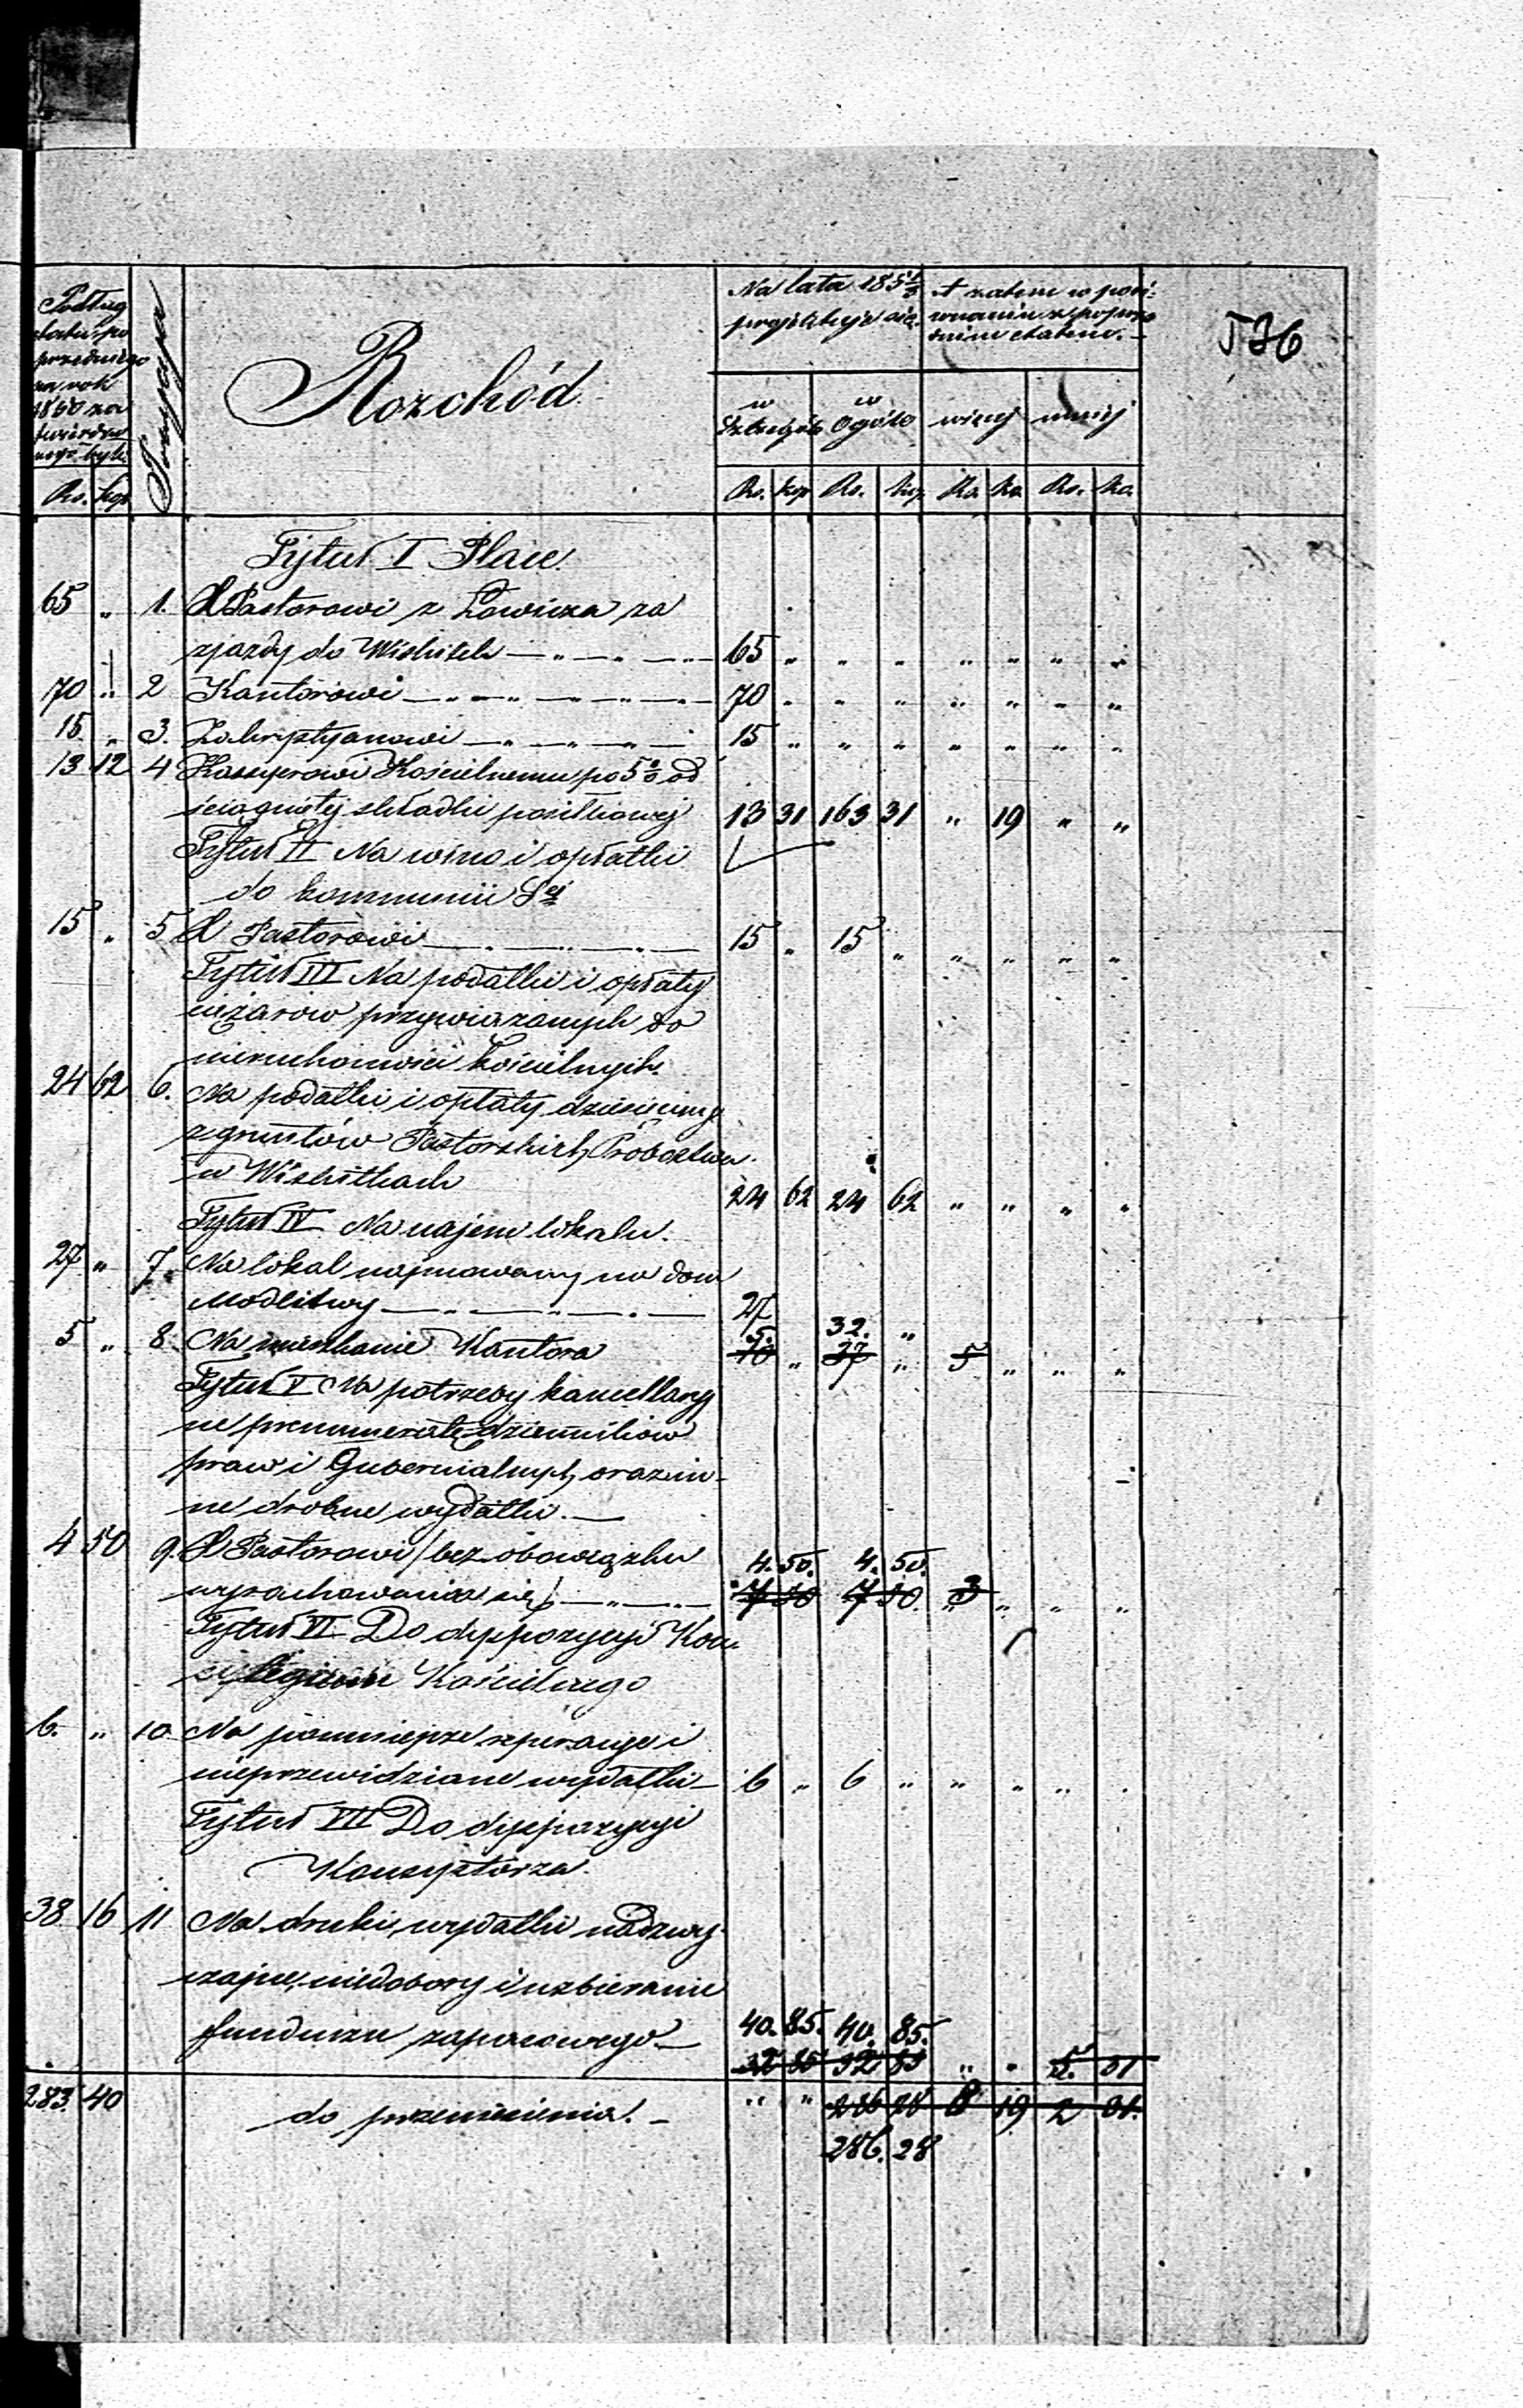 536
Podług etatu poprzedniego na rok 1850 zatwierdzonego było
Pozycya
Rozchód
Na lata 185 1/3 projektuje się
A zatem w porównaniu z poprzednim etatem.
w szczególe w ogóle więcej mniej
Rs. kop. Rs. kop. Rs. ko. Rs. ko. Rs. ko.
Tytuł I Płace.
65 " 1. X Pastorowi z Łowicza za
zjazdy do Wiskitek 65 " " " " " " "
70 " 2 Kantorowi 70 " " " " " " "
15 " 3. Zakrystyanowi 15 " " " " " " "
13 12 4 Kassyerowi Kościelnemu po 5% od
ściągniętej składki posiłkowej 13 31 163 31 " 19 " "
Tytuł II Na wino i opłatki
do kommunii Sej
15 " 5 X Pastorowi 15 " 15 " " " " "
Tytuł III Na podatki i opłaty
ciężarów przywiązanych do
nieruchomości kościelnych.
24 62 6. Na podatki i opłaty dziesięciny
z gruntów Pastorskich Probostwa
w Wiskitkach 24 62 24 62 " " " "
Tytuł IV Na najem lokalu.
27 " 7. Na lokal najmowany na dom
Modlitwy 27
5. 32. "
5 " 8. Na mieszkanie Kantora 10 " 37 " 5 " " "
Tytuł V Na potrzeby kancellaryj
ne prenumeratę dzienników
praw i Gubernialnych, oraz in-
ne drobne wydatki.
4 50 9. X Pastorowi /bez obowiązku
4. 50. 4. 50.
wyrachowania się/ 7 50 7 50 3 " " "
Tytuł VI Do dyspozycyi Kol
Kościelnego
6. " 10 Na pomniejsze reperacye i
nieprzewidziane wydatki 6 " 6 " " " " "
Tytuł VII Do dyspozycyi
Konsystorza.
38 16 11 Na druki, wydatki nadzwy-
czajne, niedobory i uzbieranie
funduszu zapasowego 40. 85. 40. 85.
32 85 32 85 " " 5. 31
283. 40 do przeniesienia. " " 286 28 8 19 2 31.
286. 28